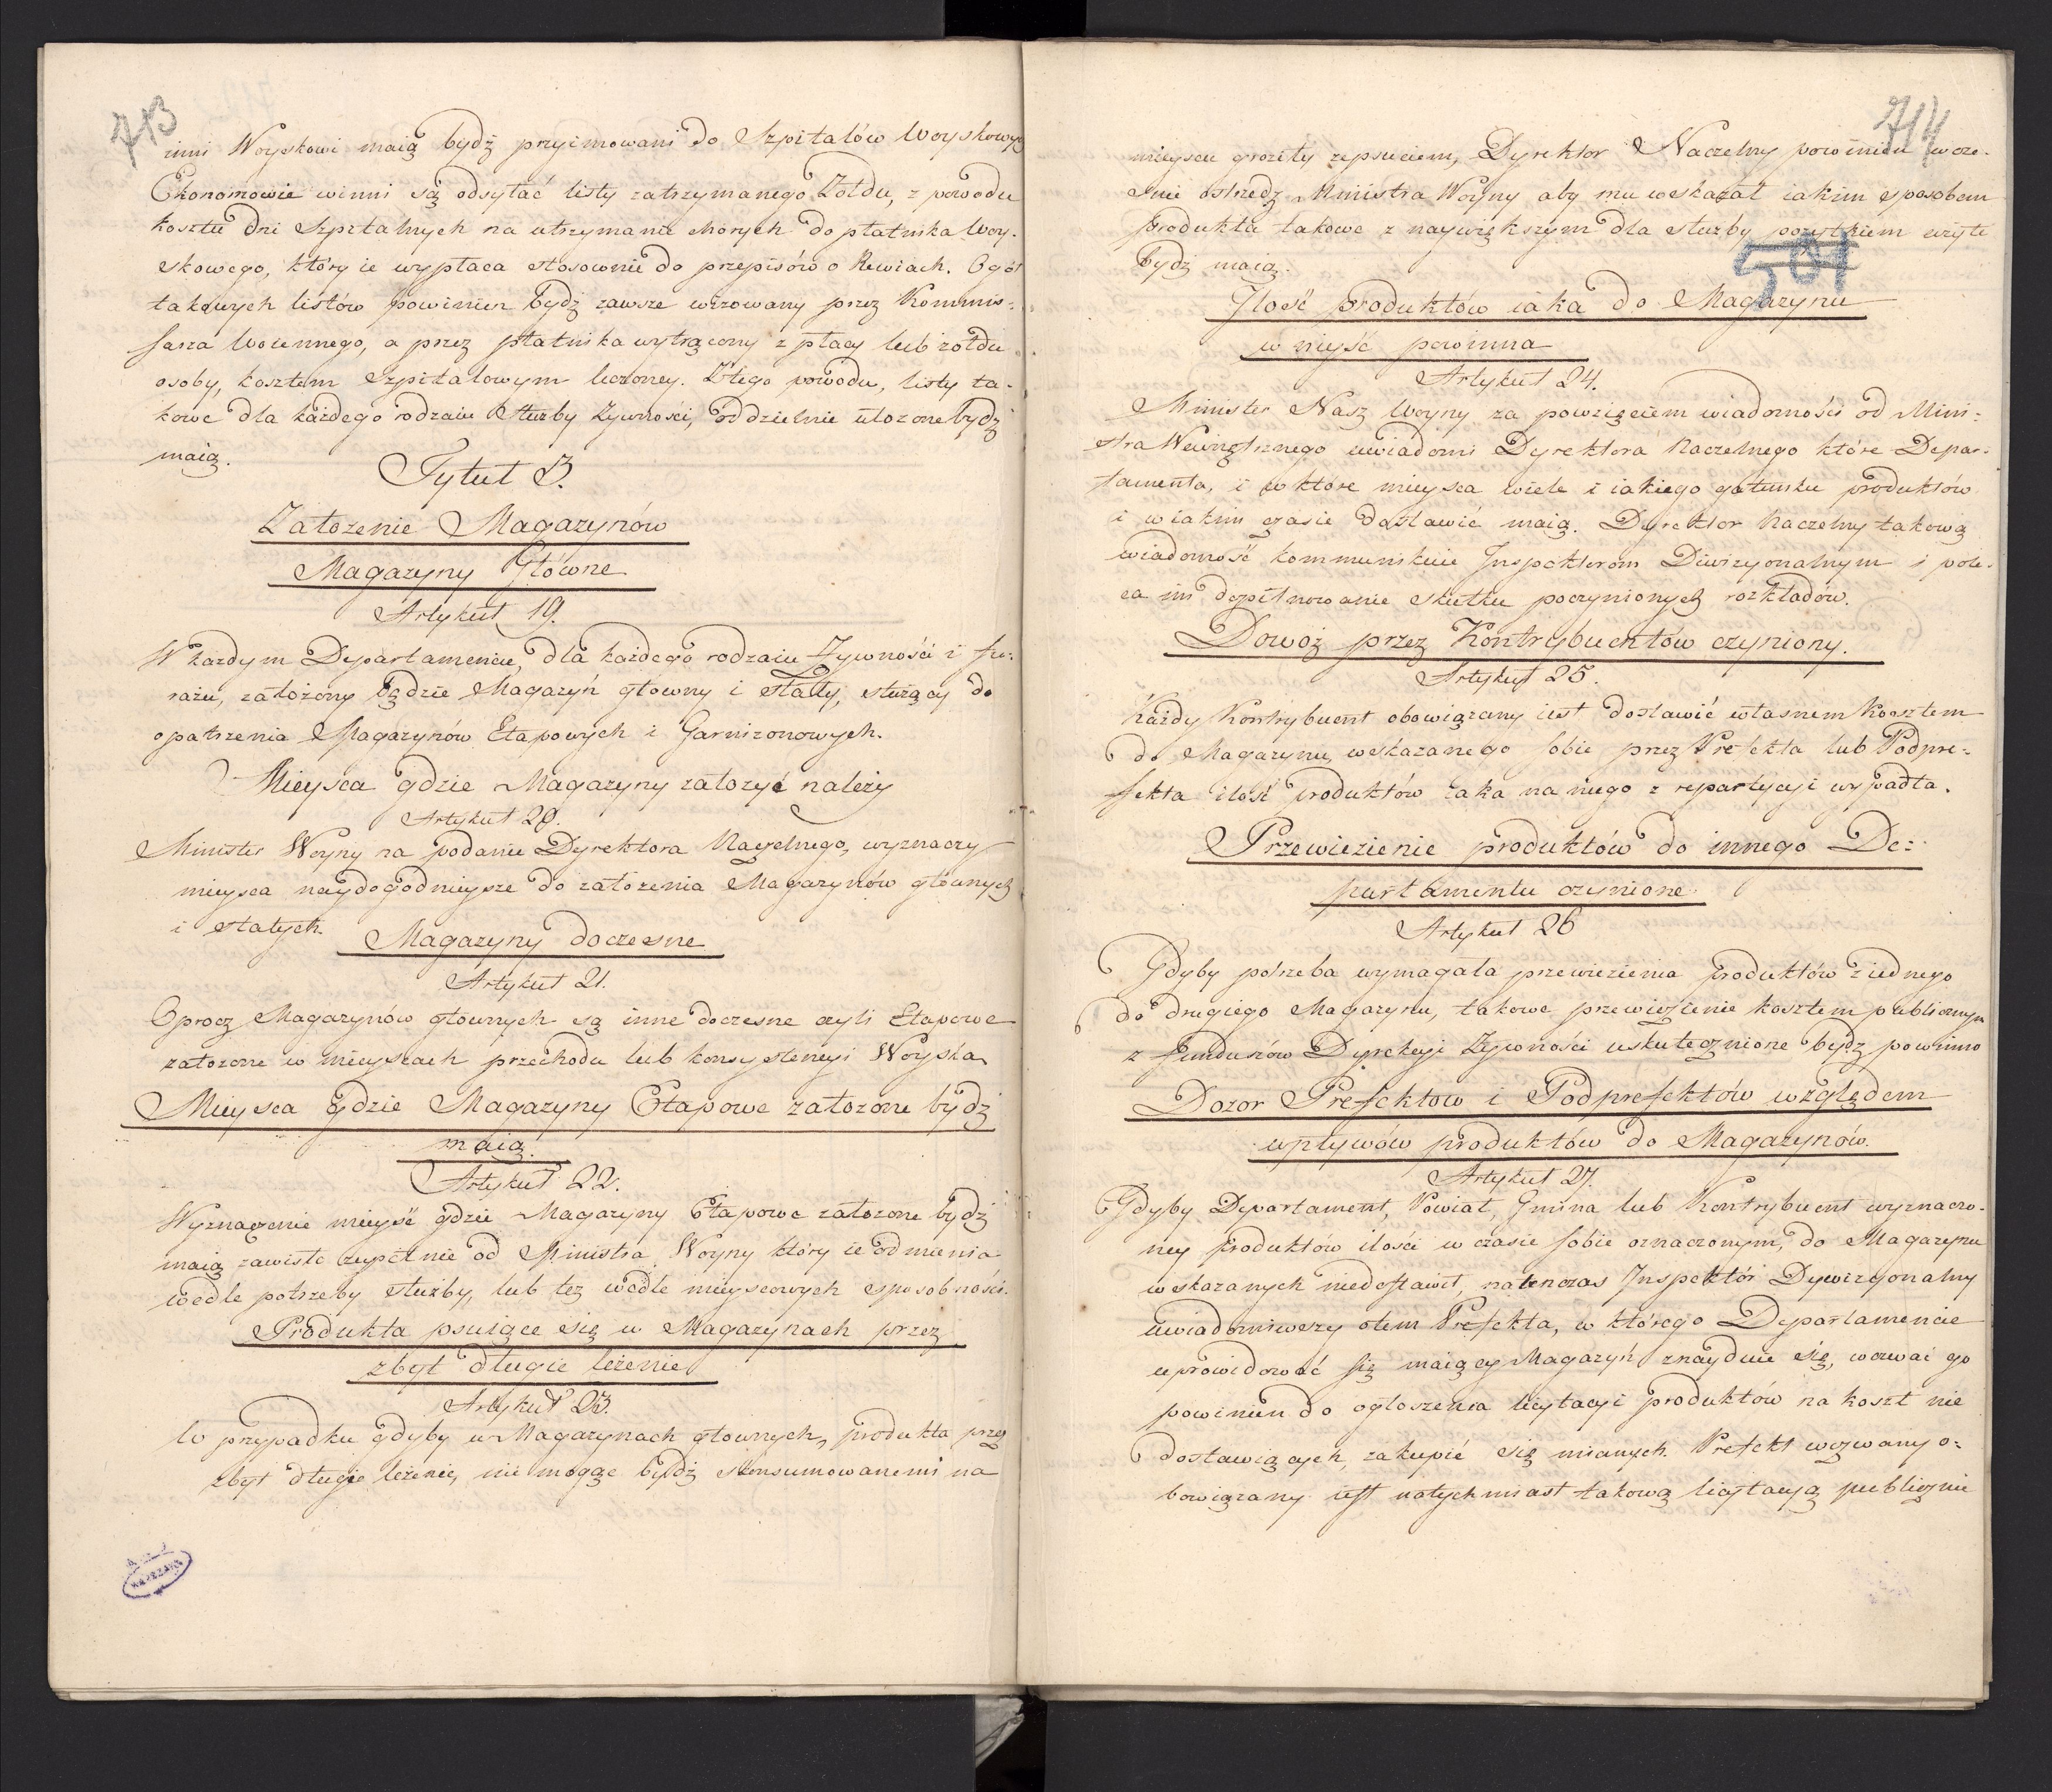 713
inni Woyskowi maią bydź przyimowani do Szpitalów Woyskowych
Ekonomowie winni są odsyłać listy zatrzymanego Żołdu, z powodu
kosztu dni Szpitalnych na utrzymanie chorych do płatnika Woy-
skowego, który ie wypłaca stosownie do przepisów o Rewiach. Ogół
takowych listów powinien bydź zawsze wizowany przez Kommis-
sarza Woiennego, a przez płatnika wytrącony z płacy lub żołdu
osoby, kosztem Szpitalowym leczoney. Z tego powodu, listy ta-
kowe dla każdego rodzaiu Służby Żywności, oddzielnie ułozone bydź
maią.
Tytuł 3.
Założenie Magazynów
Magazyny Główne
Artykuł 19.
W każdym Departamencie, dla każdego rodzaiu Żywności i fu-
rażu, założony będzie Magazyn głowny i stały, służący do
opatrzenia Magazynów Etapowych i Garnizonowych.
Mieysca gdzie Magazyny założyć należy
Artykuł 20.
Minister Woyny na podanie Dyrektora Naczelnego, wyznaczy
mieysca naydogodnieysze do założenia Magazynów głównych
i stałych.
Magazyny doczesne
Artykuł 21.
Oprocz Magazynów głównych są inne doczesne czyli Etapowe
założone w mieyscach przechodu lub konsystencyi Woyska
Mieysca gdzie Magazyny Etapowe założone bydź
maią.
Artykuł 22.
Wyznaczenie mieysć gdzie Magazyny Etapowe założone bydź
maią zawisło zupełnie od Ministra Woyny który ie odmienia
wedle potrzeby służby, lub też wedle mieyscowych sposobności.
Produkta psuiące się w Magazynach przez
zbyt długie leżenie
Artykuł 23.
W przypadku gdyby w Magazynach głownych, produkta przez
zbyt długie leżenie, nie mogąc bydź skonsumowanemi na
714
mieyscu groziły zepsuciem, Dyrektor Naczelny powinien wcze-
śnie ostrzedz Ministra Woyny aby mu wskazał iakim sposobem
produkta takowe z naywiększym dla służby pożytkiem użyte
bydź maią.
501
Ilość produktów iaka do Magazynu
wniyść powinna
Artykuł 24.
Minister Nasz Woyny za powzięciem wiadomości od Mini-
stra Wewnętrznego uwiadomi Dyrektora Naczelnego które Depar-
tamenta, i w które mieysca wiele i iakiego gatunku produktów
i w iakim czasie dostawić maią. Dyrektor Naczelny takową
wiadomość kommunikuie Inspektorom Diwizyonalnym i pole-
ca im dopilnowanie skutku poczynionych rozkładów.
Dowoz przez Kontrybuentów czyniony.
Artykuł 25.
Każdy Kontrybuent obowiązany iest dostawić własnem Kosztem
do Magazynu wskazanego sobie przez Prefekta lub Podpre-
fekta ilość produktów iaka na niego z repartycyi wypadła.
Przewiezienie produktów do innego De-
partamentu czynione
Artykuł 26
Gdyby potrzeba wymagała przewiezienia produktów z iednego
do drugiego Magazynu, takowe przewiezienie kosztem publicznym
z funduszów Dyrekcyi Żywności uskutecznione bydź powinno
Dozor Prefektow i Podprefektów względem
wpływów produktów do Magazynów.
Artykuł 27.
Gdyby Departament, Powiat, Gmina lub Kontrybuent wyznaczo-
ney produktów ilości w czasie sobie oznaczonym, do Magazynu
wskazanych niedostawił, natenczas Inspektor Dywizyonalny
uwiadomiwszy otem Prefekta, w którego Departamencie
uprowidować się maiący Magazyn znayduie się, wezwać go
powinien do ogłoszenia licytacyi produktów na koszt nie
dostawiących, zakupić się mianych. Prefekt wezwany o-
bowiązany iest natychmiast takową licytacyą publicznie